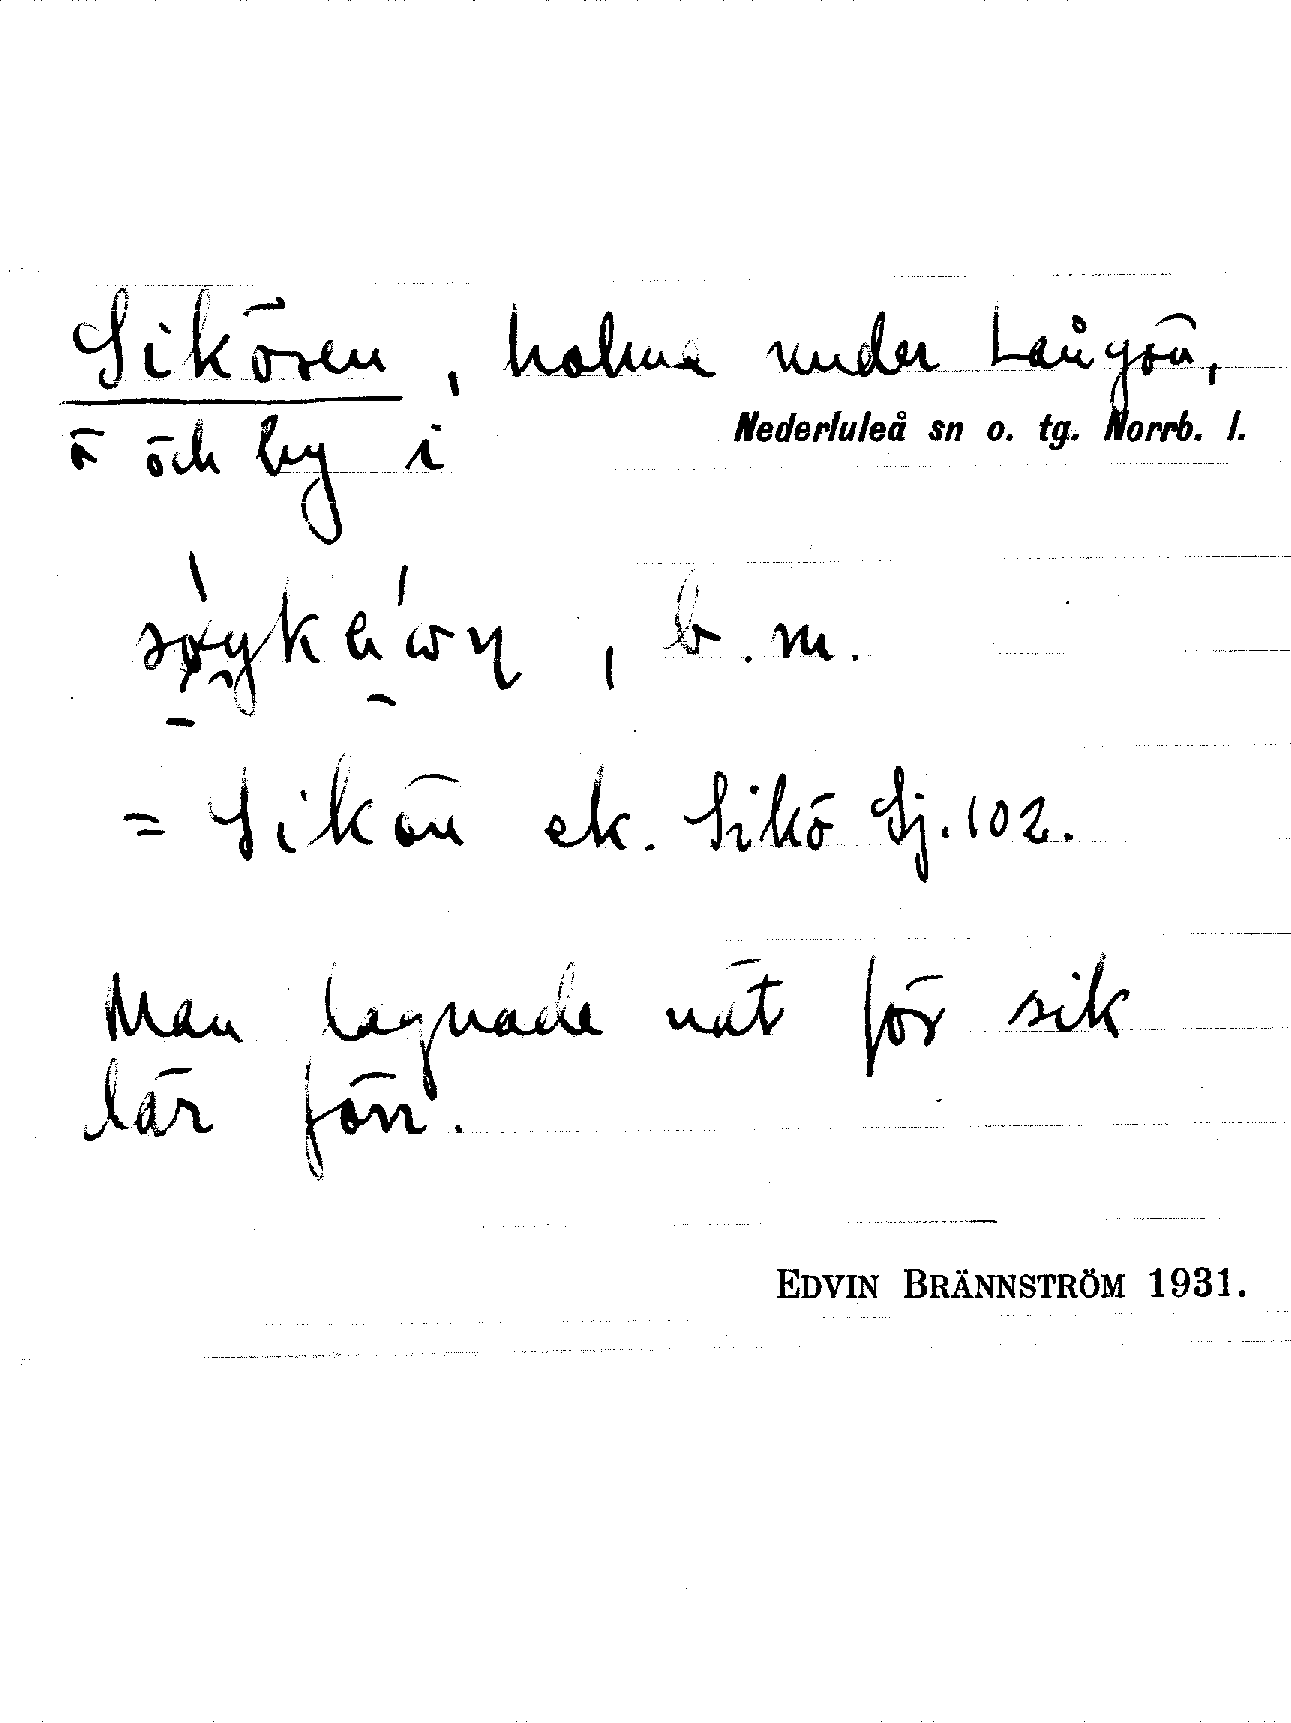 Sikören, holme under Långön,
Nederluleå sn o. tg. Norrb. l.
ö och by i
, b. m.
= Sikön ek. Sikö Sj. 102.
Man lagnade nät för sik
här förr.
EDVIN BRÄNNSTRÖM 1931.